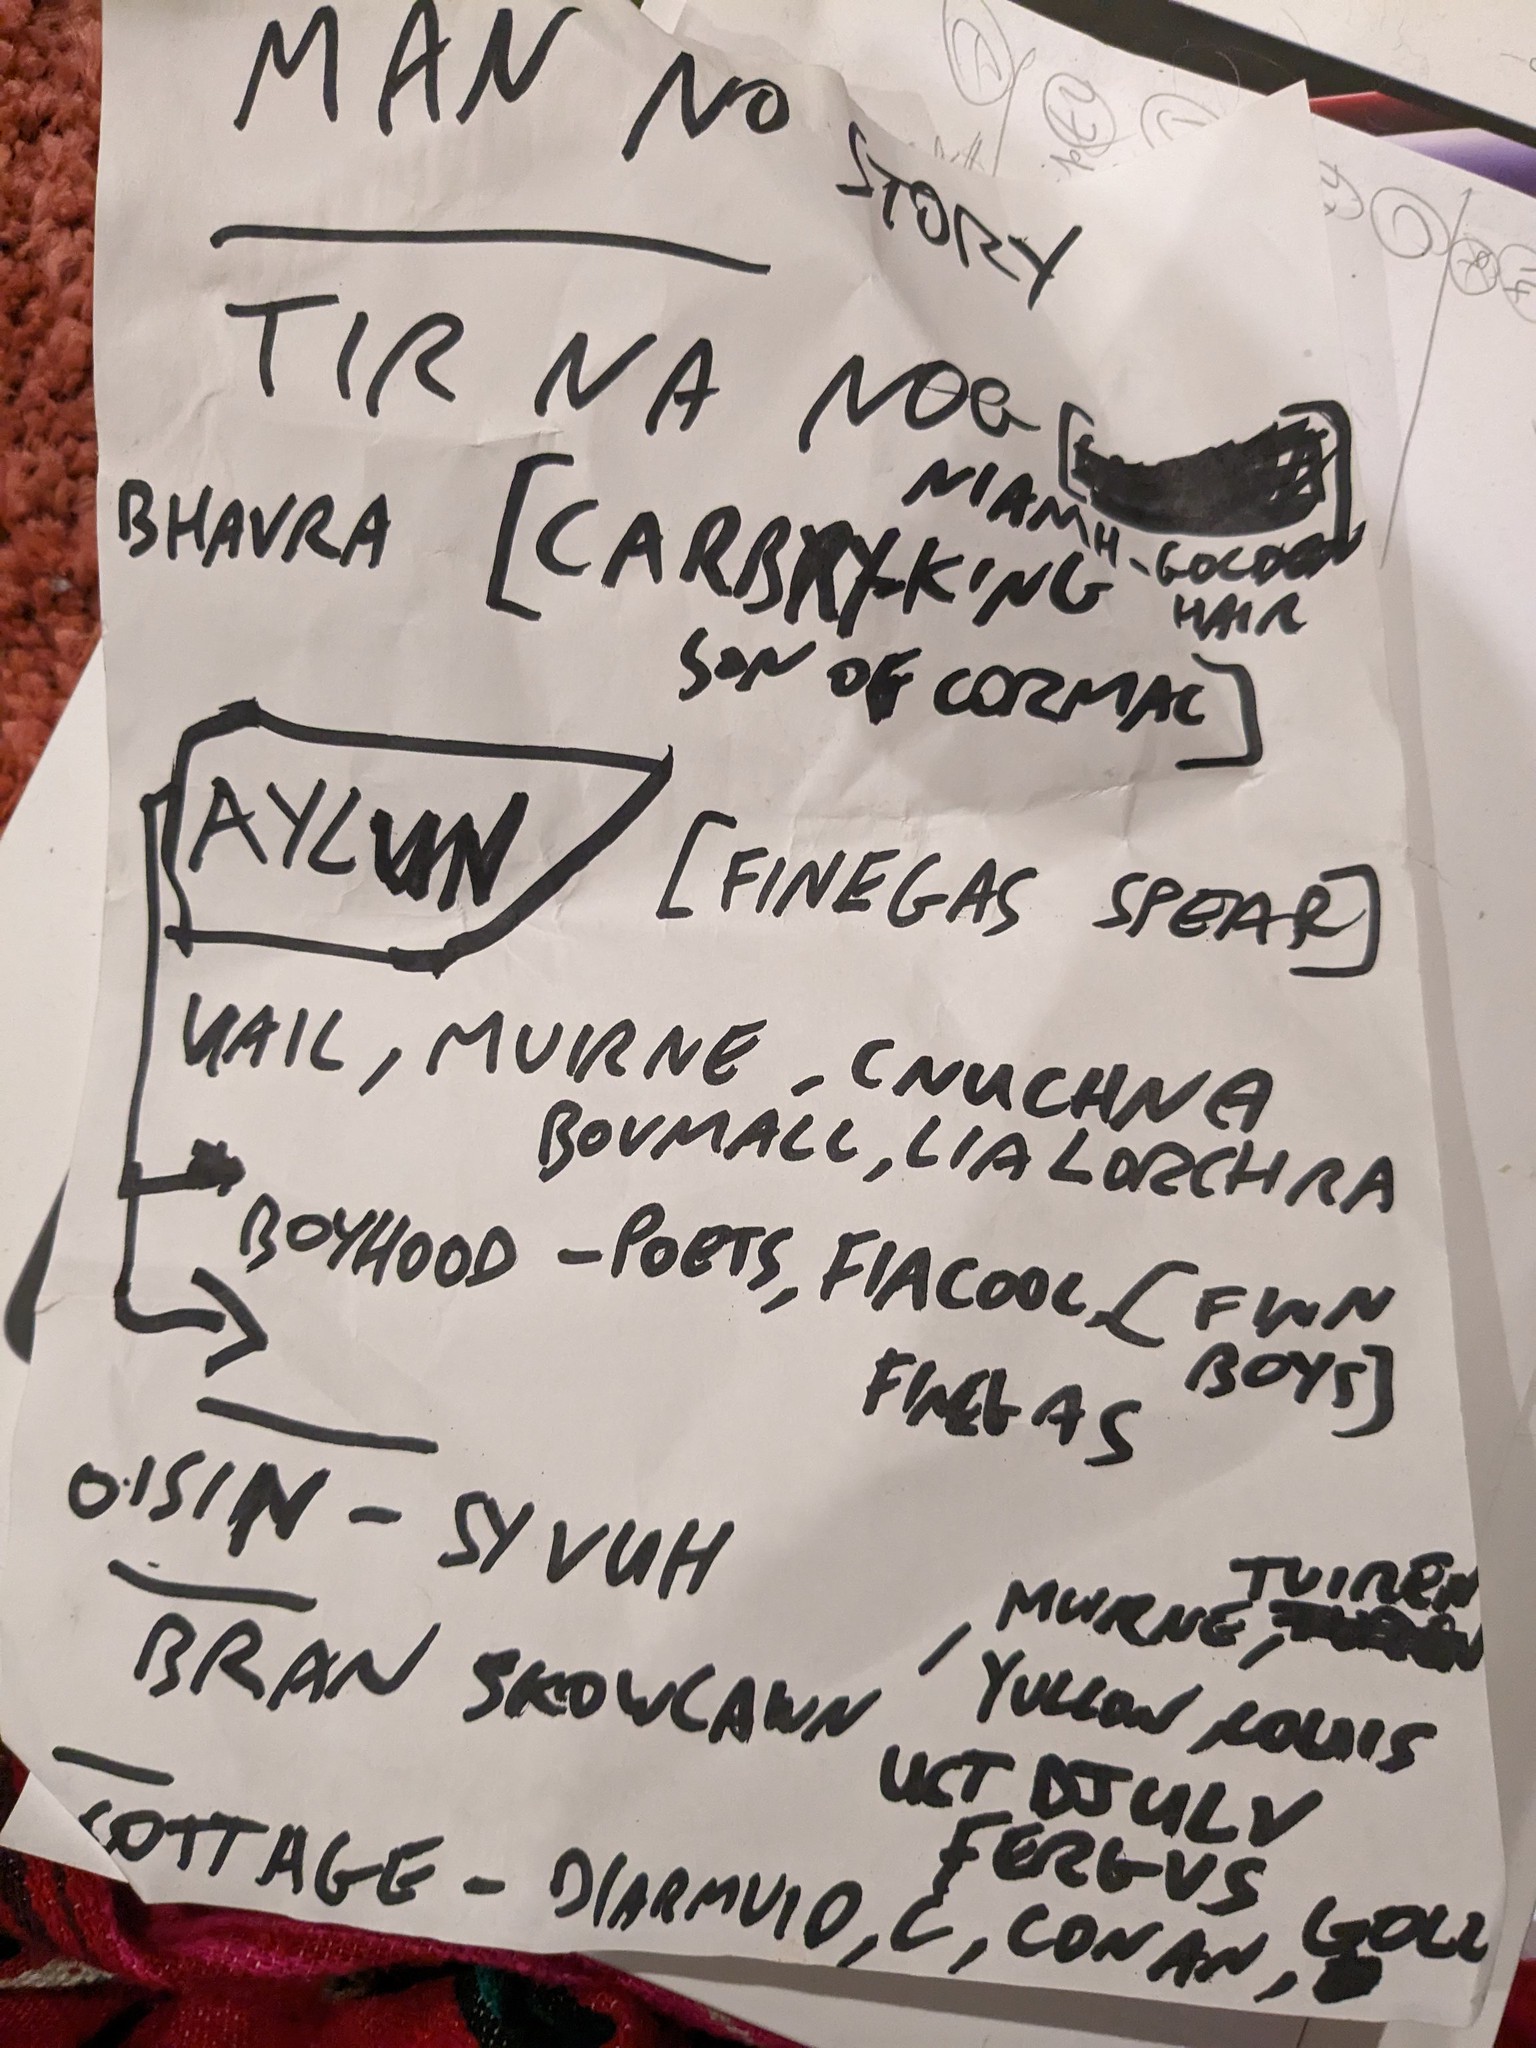 MAN NO
STORY
TIR NA NOG [
NIAMH-GOLDEN
HAIR
BHAVRA [CARBRY-KING
SON OF CORMAC]
AYLUN [FINEGAS SPEAR]
UAIL, MUIRNE, CNUCHNA
BOVMALL, LIA LORCHRA
BOYHOOD - POETS, FIACOOL, [FINN
BOYS]
FINEGAS
OISIN - SYVUH
BRAN SKOWLAWN, MUIRNE, TUIREN
YULLON
UCT DJULV
FERGUS
COTTAGE - DIARMUID, C, CONAN, GOLL